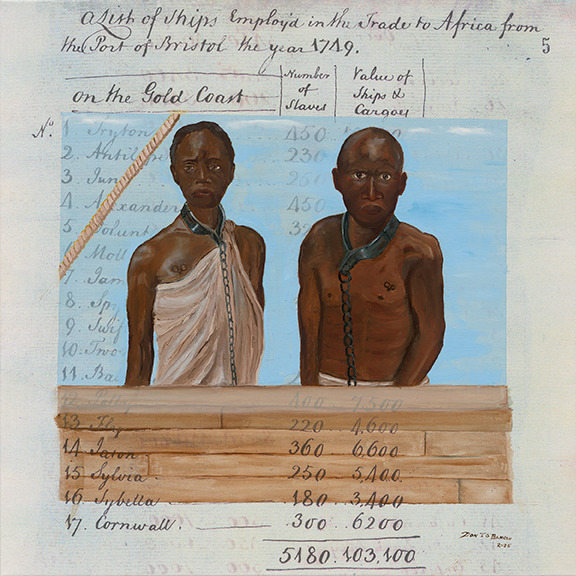 A List of Ships Employ'd in the Trade to Africa from
the Port of Bristol the year 1749.
5
on the Gold Coast
Number of Slaves
Value of Ships & Cargoes
No.
1. Tryton 450
2. Antil 230
3 Jun
4. A xander 450
5 Volunt 32
6 Moll
7. Jam
8. Sp
9. Swif
10. Two
11. Ba
12. 400 7,500
13 Fly 220 4,600
14 Jason 360 6,600
15 Sylvia. 250 5,400
16 Sybella 180 3,400
17. Cornwall. 300 6200
5180. 103,100